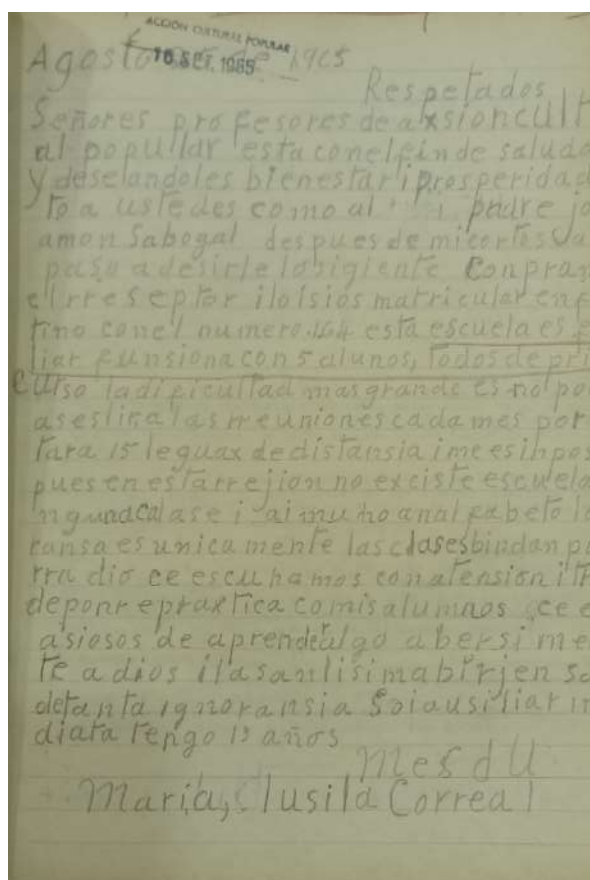 ACCIÓN CULTURAL POPULAR
16. SET. 1965
Agosto de 1965
Respetados
Señores profesores de axsioncult
al popullar esta con el fin de saluda
y deselandoles bienestar i prosperidad
to a ustedes como al padre jo
amon Sabogal despues de mi cortes sa
paso a desirle lo sigiente Conpram
el rreseptor i lo matricular en
tino con el numero 164 esta escuela es f
liar funsiona con 5 alunos, todos de pri
curso la dificultad mas grande es no po
asestir a las rreuniones cada mes por
tara 15 leguax de distansia i me es inpos
pues en esta rrejion no exciste escuela
ngunacalase i ai muho analfabeto la
ransa es unicamente las clases bindan p
rradio ce escuhamos con atension i tr
de ponr e praxtica co mis alumnos ce e
asiosos de aprender algo a ber si me
te a dios i la santisima birjen sa
de tanta ignoransia Soi ausiliar in
diata tengo 13 años
Mer d U
Maria, Clusila Correal